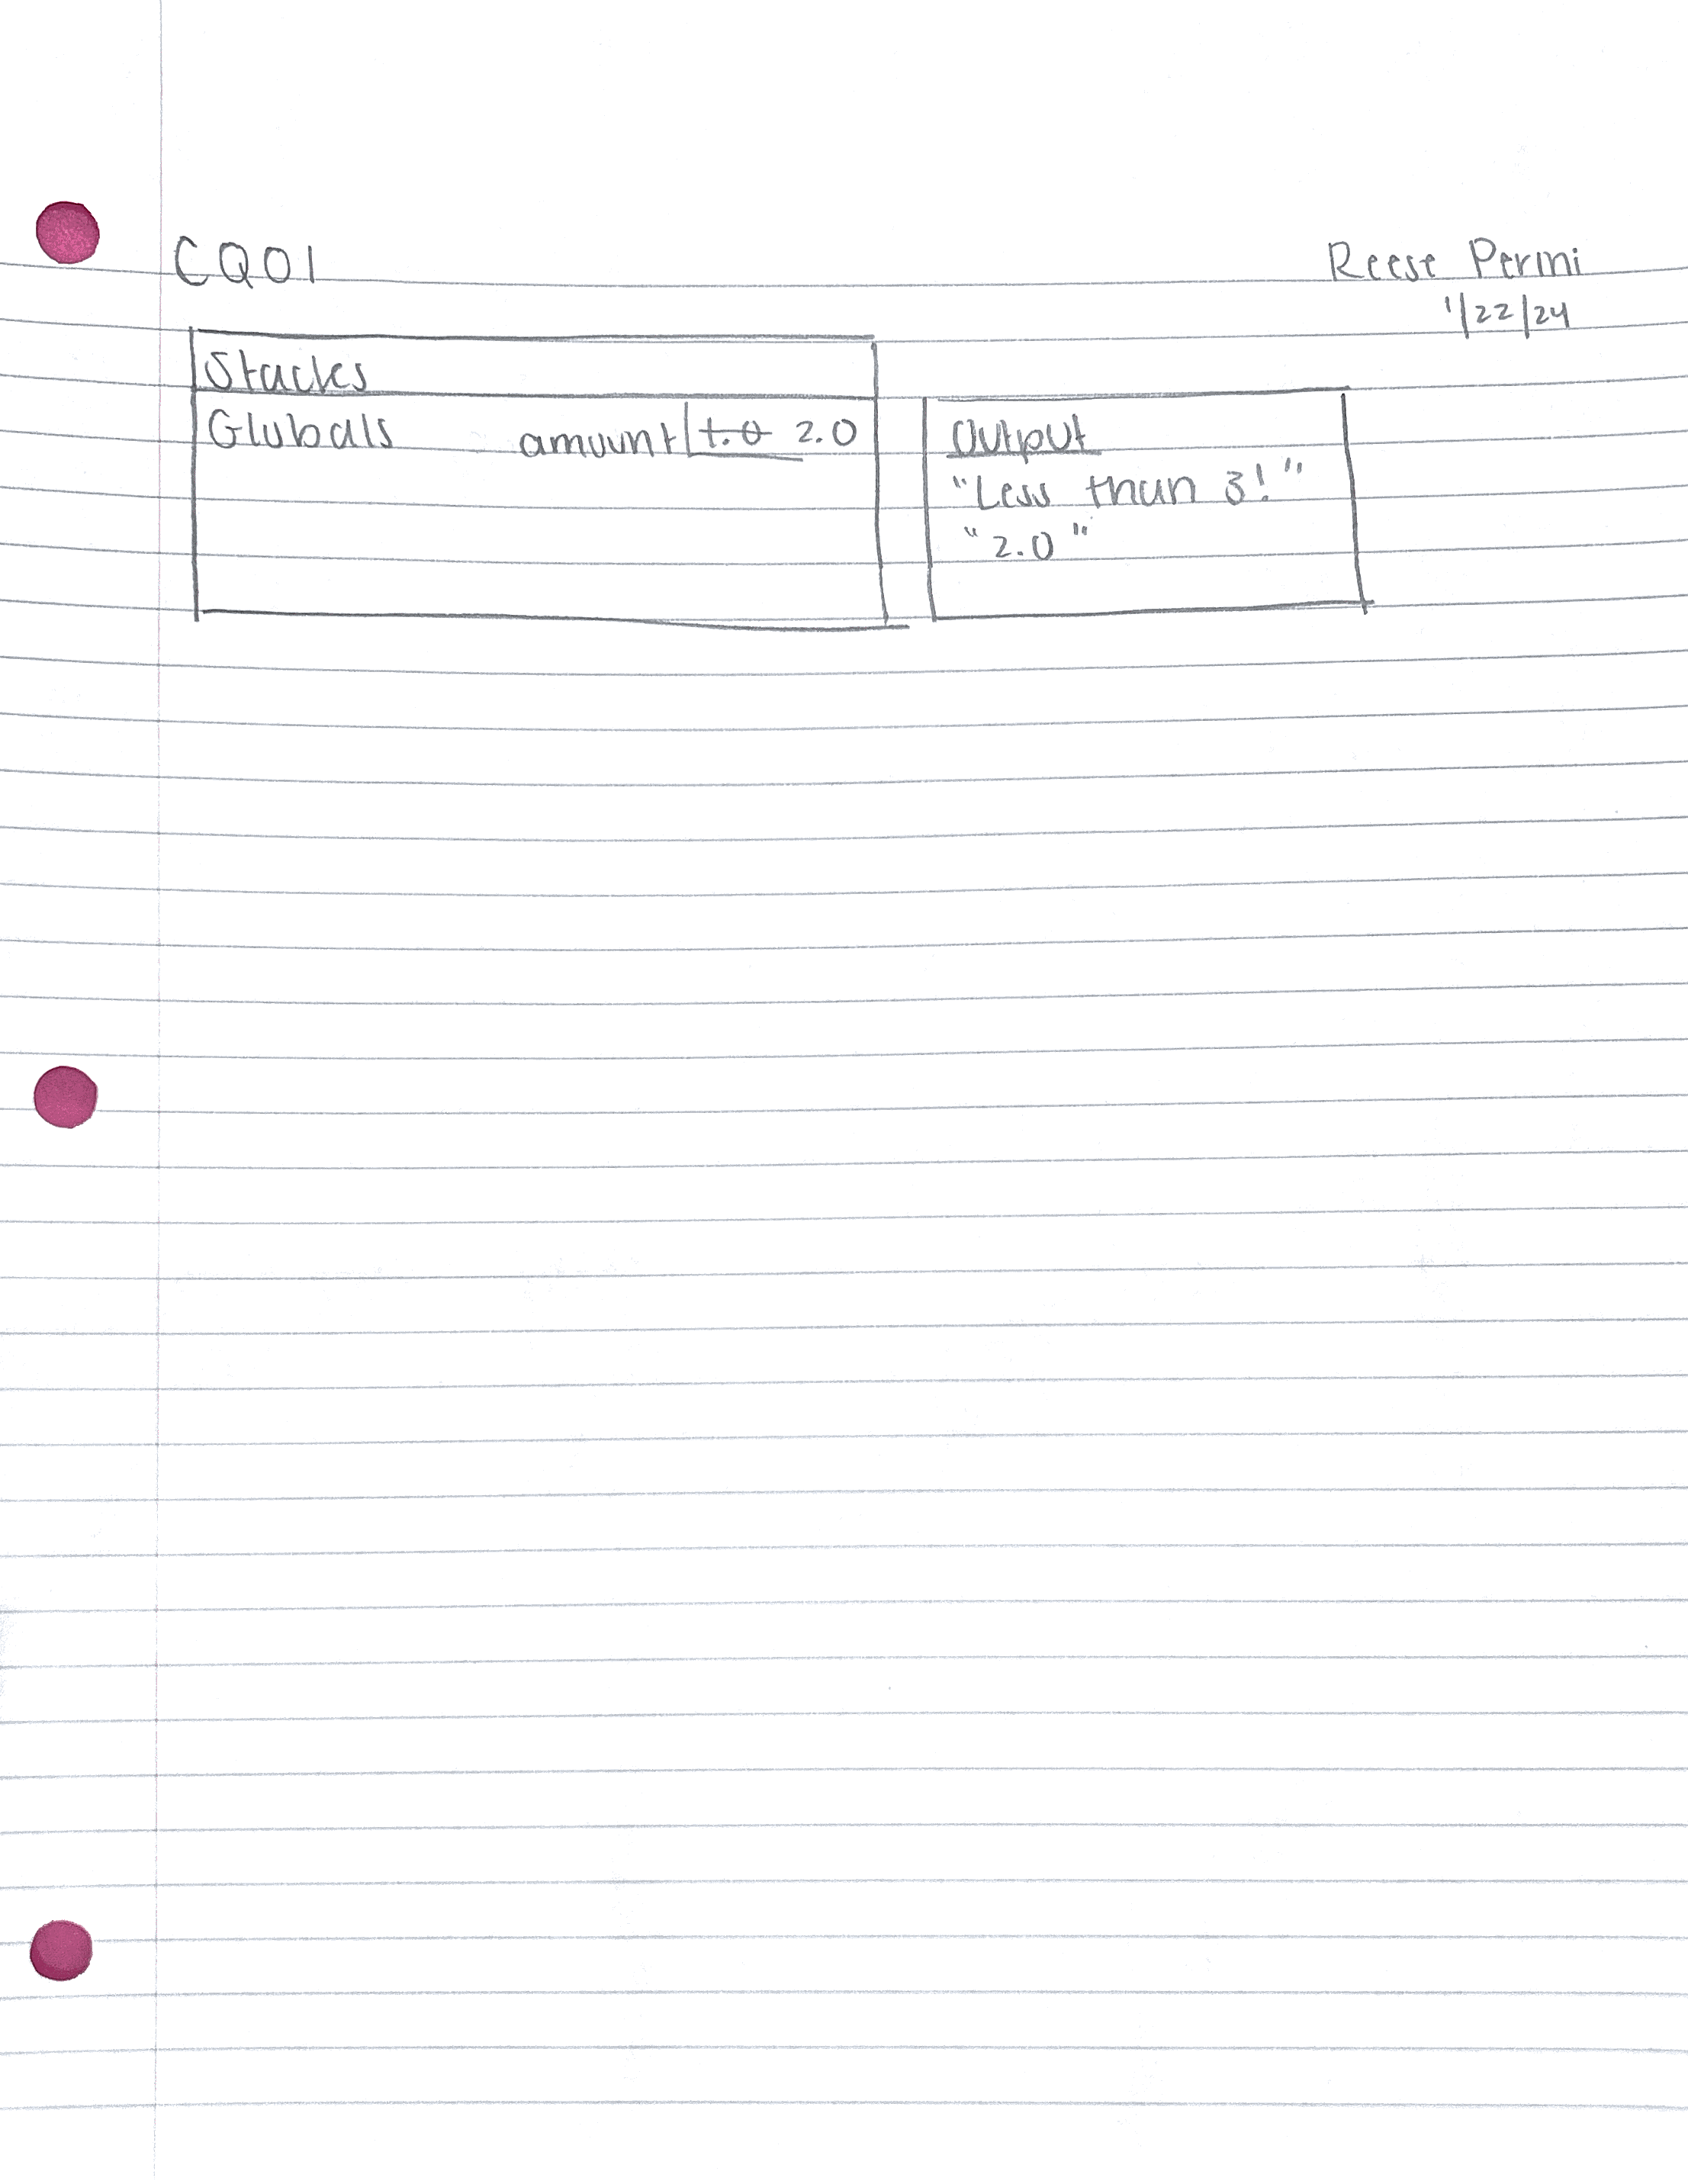 CQ01
Reese Permi
1/22/24
Stacks
Globals amount 1.0 2.0
Output
"Less than 3!"
"2.0"